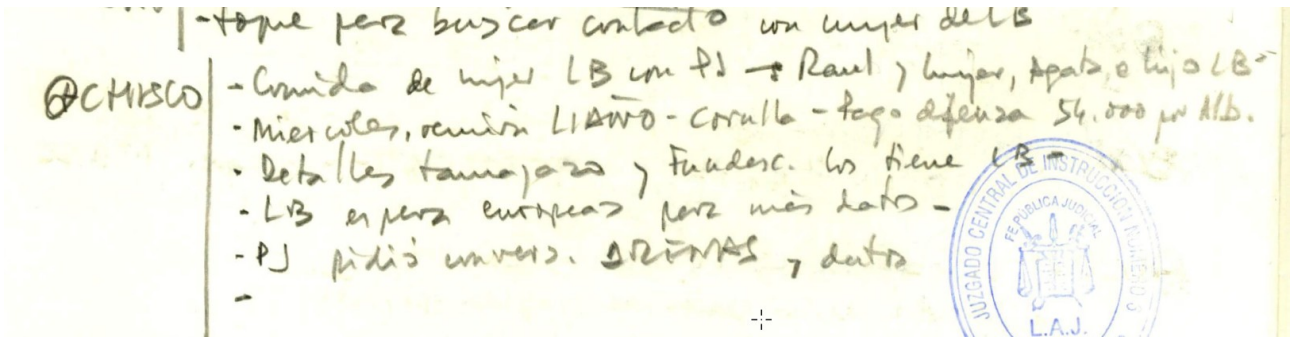 - toque para buscar contacto con mujer de LB
⊕CHISCO
- Comida de mujer LB con PJ → Raul y mujer, Agata, e hijo LB -
- Miercoles, reunión LIAÑO - Corulla - Pago defensa 54.000 por Alb.
- Detalles tamayazo y Fundesc. los tiene LB -
- LB espera europeas para más datos -
- PJ pidió convers. ARENAS y datos
-
JUZGADO CENTRAL DE INSTRUCCION NUMERO
FE PUBLICA JUDICIAL
L.A.J.